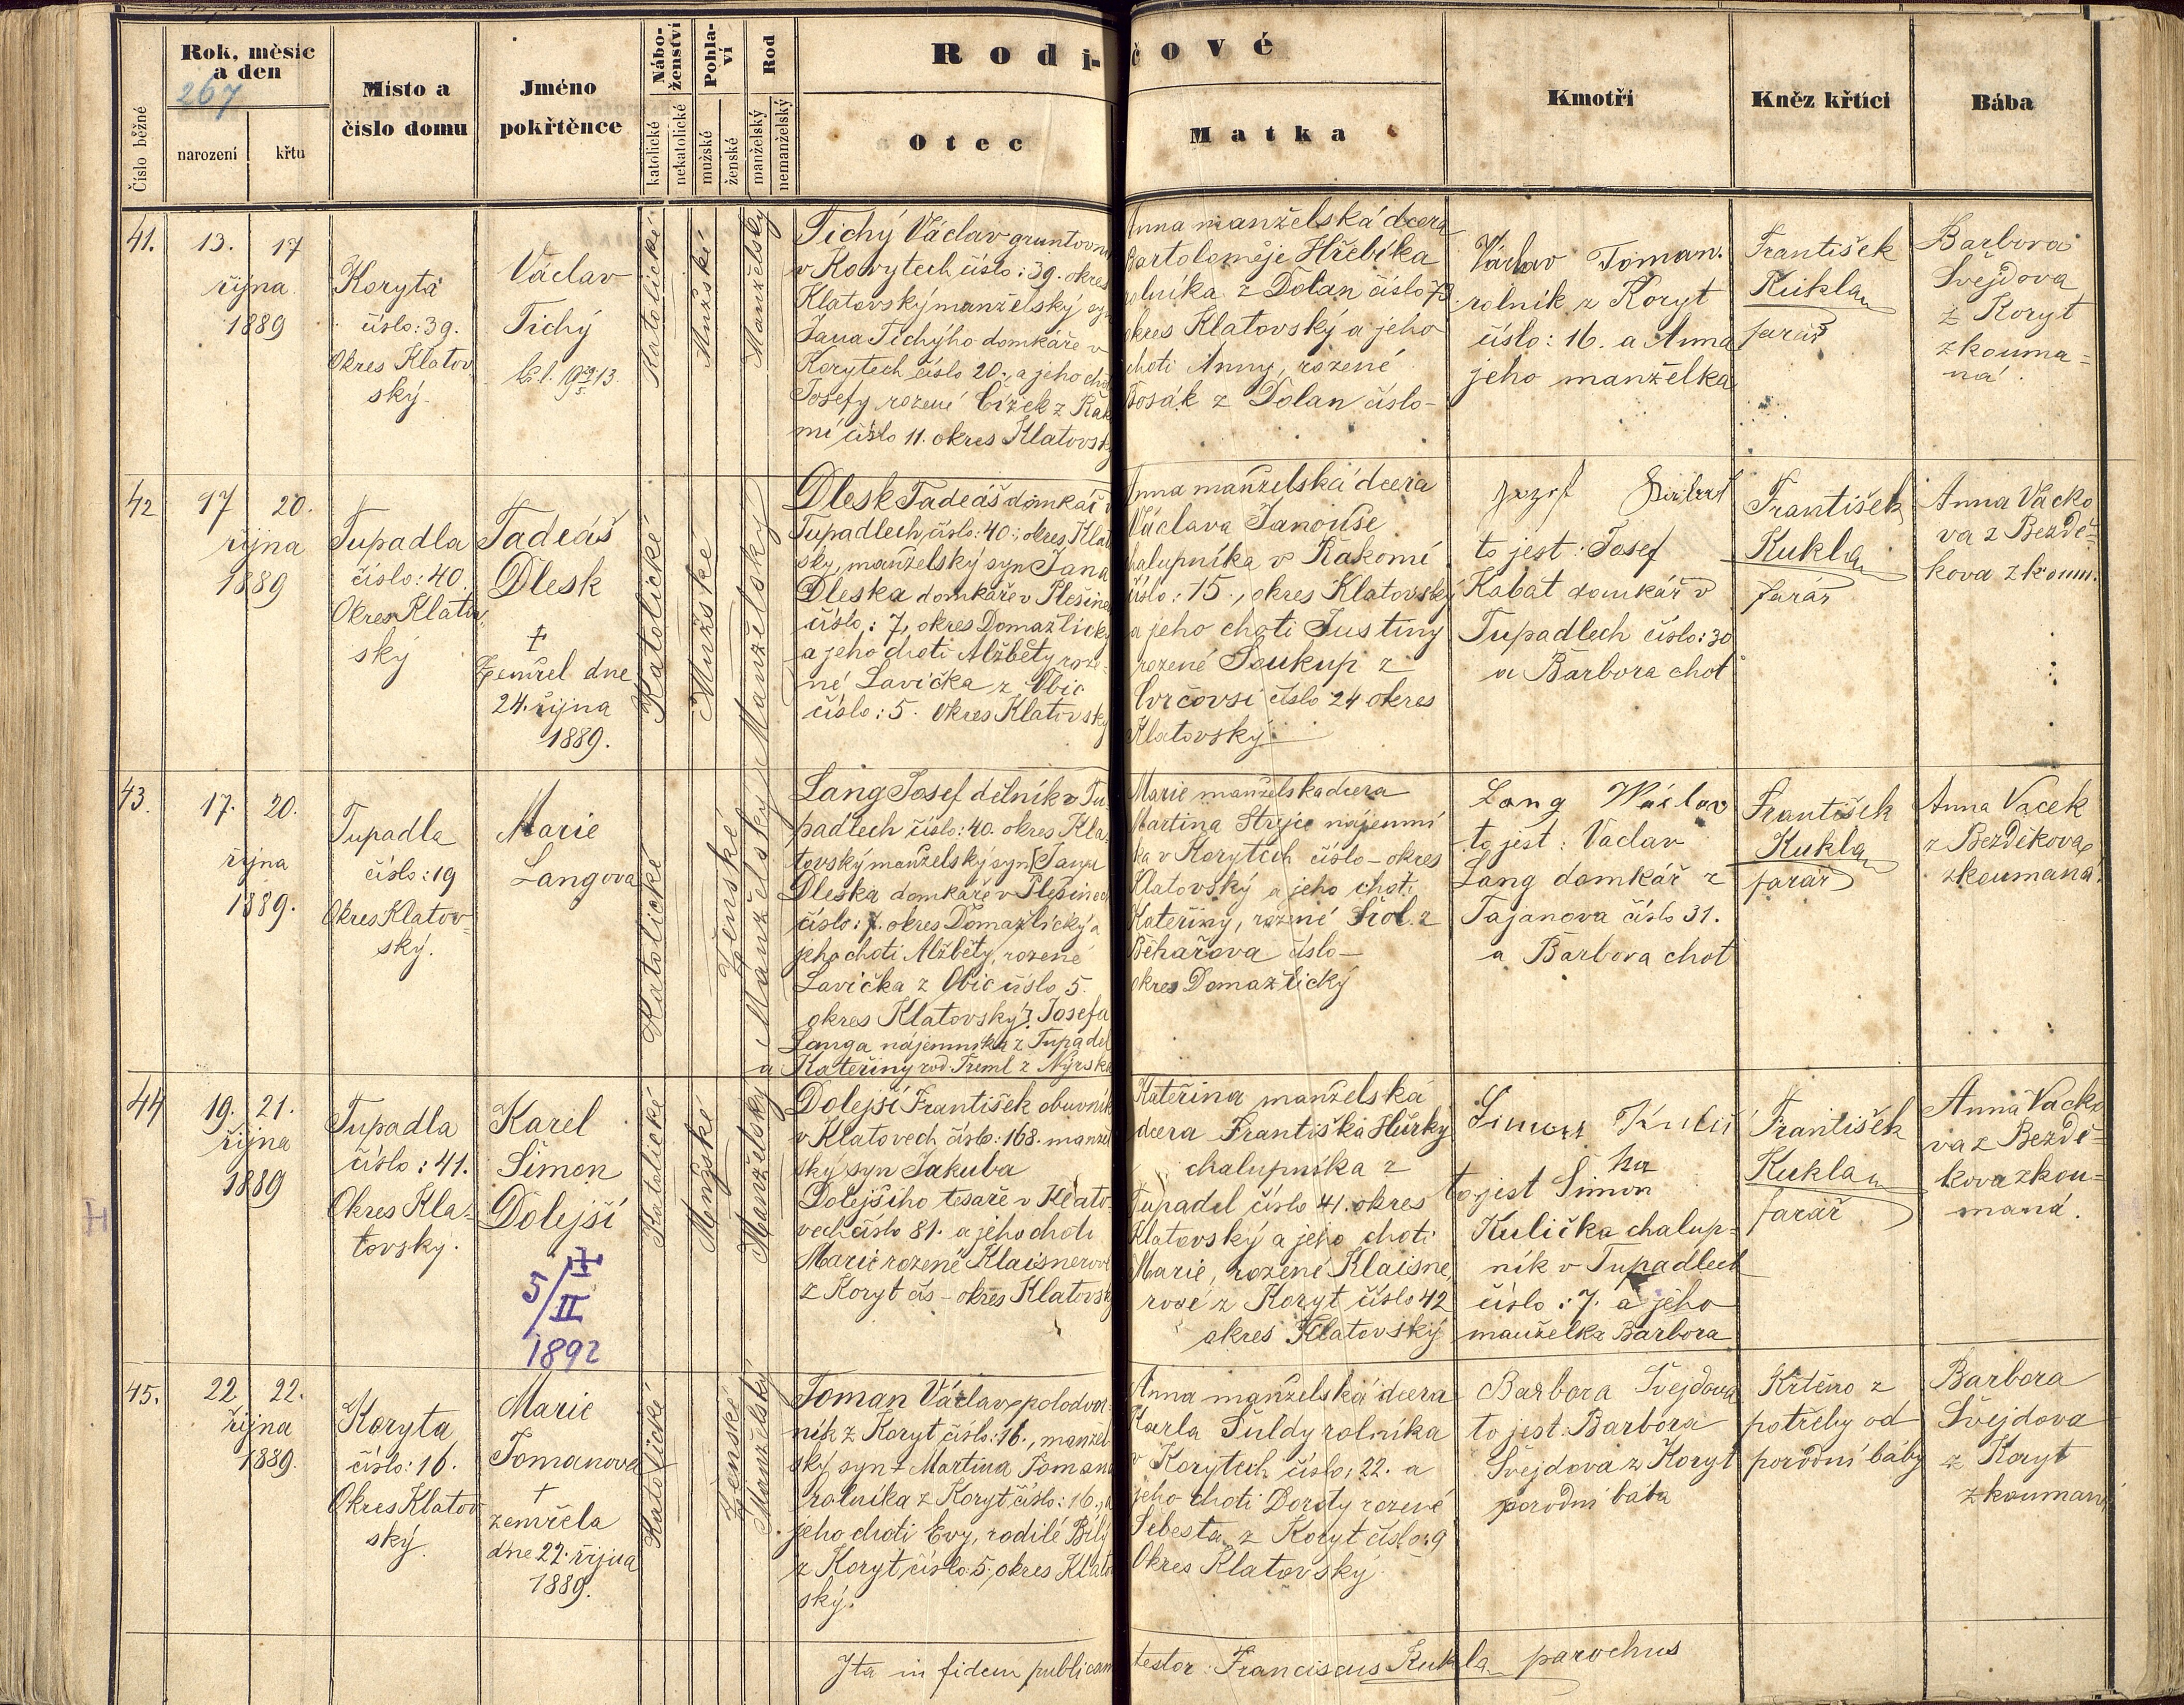 Rok, měsíc
a den
267
narození
křtu
Číslo běžné
Místo a
číslo domu
Jméno
pokřtěnce
Nábo-
ženství
katolické
nekatolické
Pohla-
ví
mužské
ženské
Rod
manželský
nemanželský
Rodi-
čové
Otec
Matka
Kmotři
Kněz křtící
Bába
41.
13. 17
října
1889
Koryta
číslo: 39.
Okres Klatov
ský.
Václav
Tichý
Katolické
Mužské
Manželský
Tichý Václav
v Korytech číslo: 39. okres
Klatovský manželský
Jana Tichýho domkáře v
Korytech číslo 20. a jeho
Josefy rozené Čížek z
mí číslo 11. okres Klatovský
Anna manželská dcera
Bartoloměje Hřebíka
rolníka z Dolan číslo 73.
okres Klatovský a jeho
choti Anny, rozené
Bosák z Dolan číslo –
Václav Toman.
rolník z Koryt
číslo: 16. a Anna
jeho manželka
František
Kukla
farář
Barbora
Švejdova
z Koryt
zkouma=
ná.
42
17 20.
října
1889
Tupadla
číslo: 40.
Okres Klatov
ský
Tadeáš
Dlesk
†
Zemřel dne
24. října
1889.
Katolické
Mužské
Manželský
Dlesk Tadeáš domkář v
Tupadlech, číslo: 40., okres Klat
ský, manželský syn Jana
Dleska domkáře v
číslo: 7, okres Domažlický
a jeho choti Alžběty roze-
né Lavička z Obic
číslo: 5. Okres Klatovský
Anna manželská dcera
Václava Janouše
chalupníka v Rakomi
číslo: 15., okres Klatovský
a jeho choti Justiny
rozené Soukup z
Vrčovsi číslo 24 okres
Klatovský.
to jest: Josef
Kabat domkář v
Tupadlech číslo: 30
a Barbora choť
František
Kukla
farář
Anna Vacko
va z Bezdě-
kova zkoum.
43.
17. 20.
října
1889.
Tupadla
číslo: 19
Okres Klatov-
ský.
Marie
Langova
Katolické
Ženské
Manželský
Lang Josef dělník v Tu-
padlech číslo: 40. okres Kla-
tovský manželský syn [Jana
Dleska domkáře v
číslo: 7. okres Domažlický a
jeho choti Alžběty, rozené
Lavička z Obic číslo 5.
okres Klatovský] Josefa
Langa nájemníka z Tupadel
a Kateřiny rod. Treml z Nýrska
Marie manželska dcera
Martina Strejce nájemní
ka v Korytech číslo – okres
Klatovský a jeho choti
Kateřiny, rozené z
Běhařova číslo –
okres Domažlický
Lang Wáclav
to jest: Vaclav
Lang domkář z
Tajanova číslo 31.
a Barbora choť
František
Kukla
farář
Anna Vacek
z Bezděkova
zkoumaná.
44
19. 21.
října
1889
Tupadla
číslo: 41.
Okres Kla-
tovský.
Karel
Šimon
Dolejší
†
5/II
1892
Katolické
Mužské
Manželský
Dolejší František obuvník
v Klatovech číslo: 168. manžel
ský syn Jakuba
Dolejšího tesaře v Klato-
vech číslo 81. a jeho choti
Marie rozené Klaisnerové
z Koryt čís – okres Klatovský
Kateřina manželská
dcera Františka Hůrky
chalupníka z
Tupadel číslo 41. okres
Klatovský a jeho choti
Marie, rozené Klaisne
rové z Koryt číslo 42
okres Klatovský
Simon Kulič
ka
to jest Šimon
Kulička chalup-
ník v Tupadlech
číslo: 7. a jeho
manželka Barbora
František
Kukla
farář
Anna Vacko
va z Bezdě-
kova zkou-
maná.
45.
22 22.
října
1889.
Koryta
číslo: 16.
Okres Klatov
ský.
Marie
Tomanova
†
zemřela
dne 22. října
1889.
Katolické
Ženské
Manželský
Toman Václav polodvor-
ník z Koryt, číslo: 16., manžel
ský syn † Martina Tomana
rolníka z Koryt číslo: 16., a
jeho choti Evy, rodilé Bílý
z Koryt číslo: 5, okres Klatov
ský.
Anna manželská dcera
Karla Šuldy rolníka
v Korytech číslo: 22. a
jeho choti Doroty rozené
Šebesta, z Koryt číslo: 9
Okres Klatovský
Barbora Švejdova
to jest: Barbora
Švejdova z Koryt
porodní bába
Křtěno z
potřeby od
porodní báby
Barbora
Švejdova
z Koryt
zkoumaná
Ita in fidem publicam
testor: Franciscus Kukla parochus